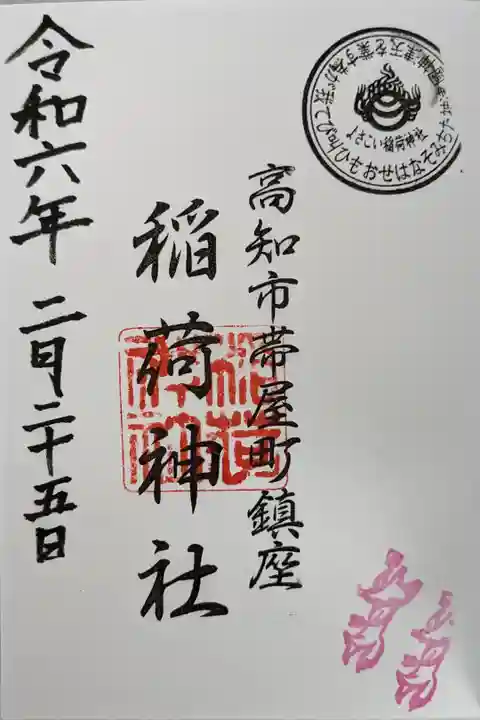 よさこい稲荷神社
高知市帯屋町鎮座
稲荷神社
令和六年 二月二十五日